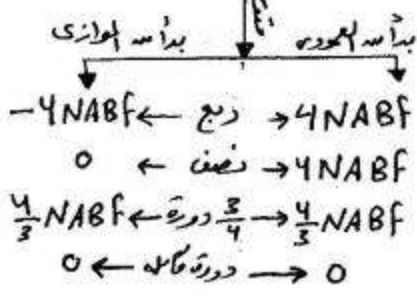 بدأ من العمودى بدأ من الموازى
4NABf ← ربع → -4NABf
4NABf ← نصف → 0
4/3 NABf ← 3/4 دورة → 4/3 NABf
0 ← دورة كاملة → 0